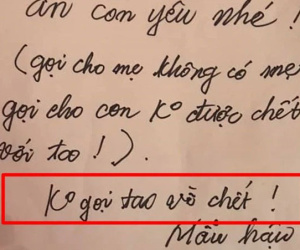 ăn con yêu nhé !
(gọi cho mẹ không có mẹ
gọi cho con K° được chết
với tao ! ).
K° gọi tao về chết !
Mẫu hậu